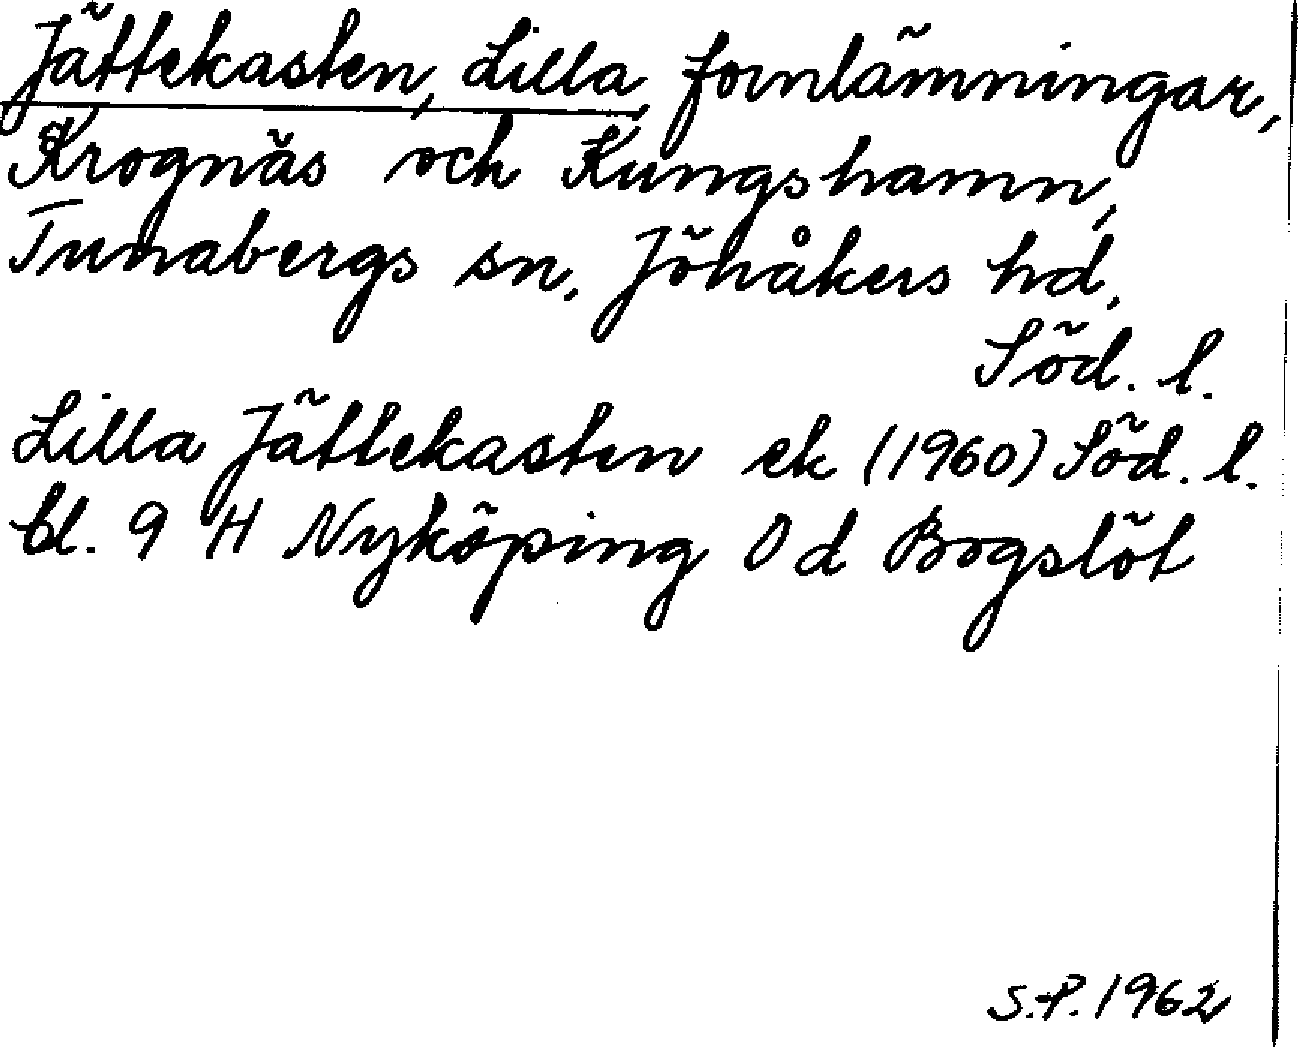 Jättekasten, Lilla, fornlämningar,
Krognäs och Kungshamn,
Tunabergs sn, Jönåkers hd,
Söd. l.
Lilla Jättekasten ek (1960) Söd. l.
bl. 9 H Nyköping 0 d Bogslöt
S.P. 1962